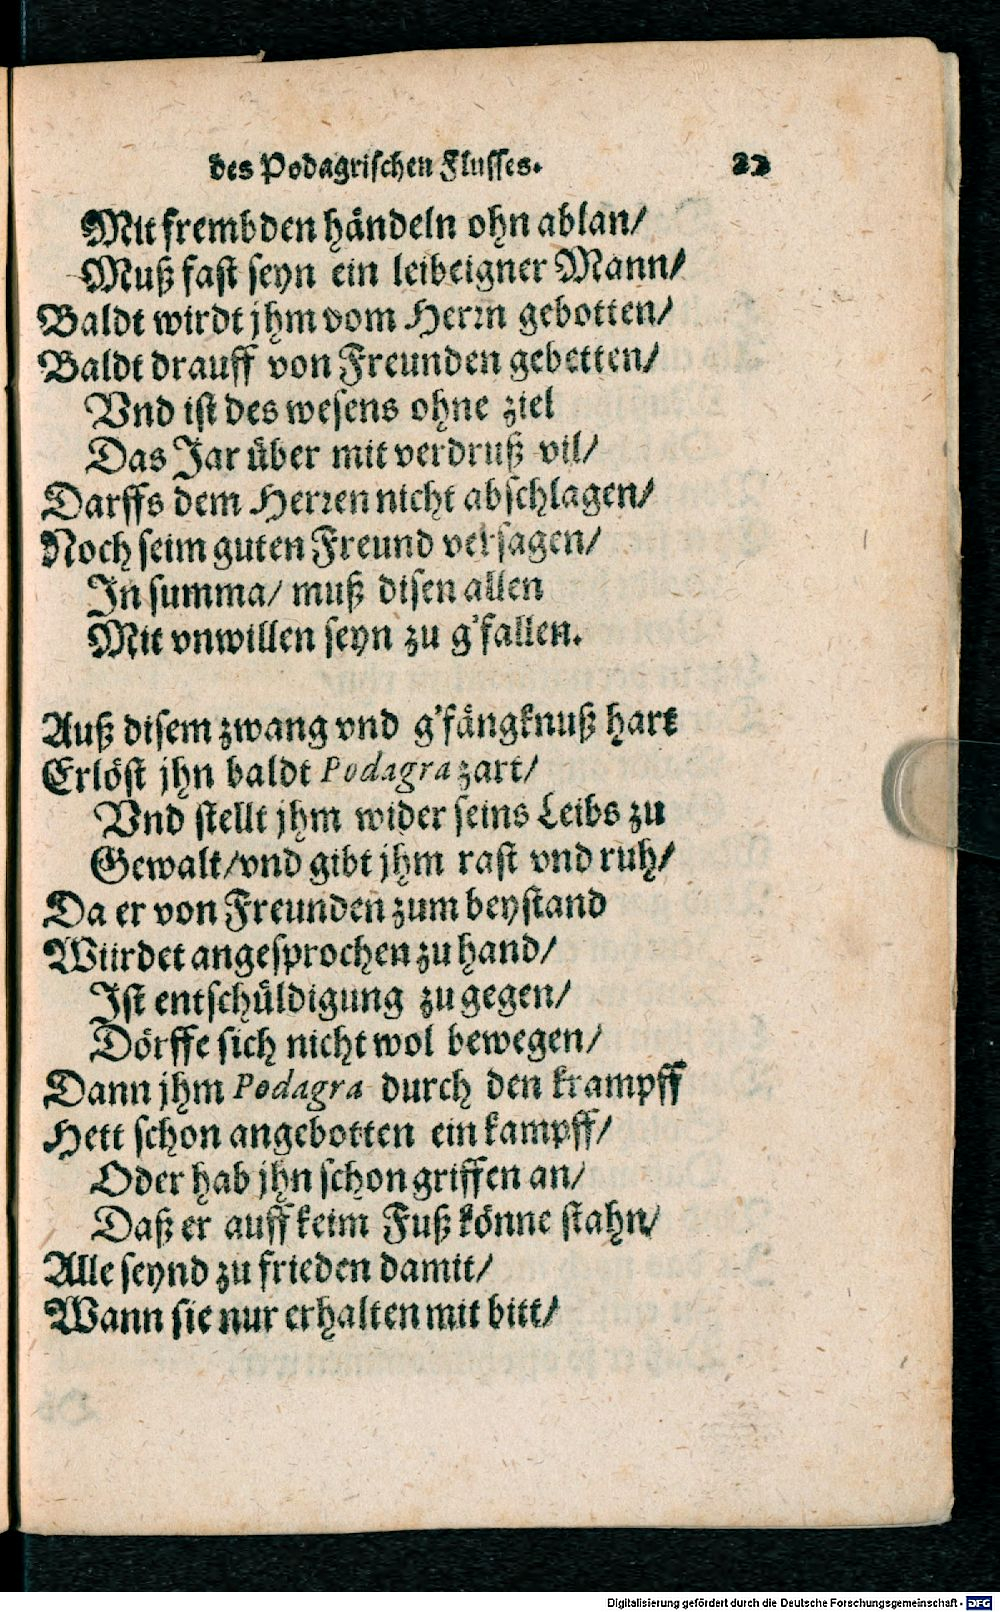 des Podagrischen Flusses. 23
Mit frembden händeln ohn ablan/
Muß fast seyn ein leibeigner Mann/
Baldt wirdt jhm vom Herrn gebotten/
Baldt drauff von Freunden gebetten/
Vnd ist des wesens ohne ziel
Das Jar über mit verdruß vil/
Darffs dem Herren nicht abschlagen/
Noch seim guten Freund versagen/
In summa/ muß disen allen
Mit vnwillen seyn zu g'fallen.
Auß disem zwang vnd g'fängknuß hart
Erlöst jhn baldt Podagra zart/
Vnd stellt jhm wider seins Leibs zu
Gewalt/vnd gibt jhm rast vnd ruh/
Da er von Freunden zum beystand
Würdet angesprochen zu hand/
Ist entschüldigung zu gegen/
Dörffe sich nicht wol bewegen/
Dann jhm Podagra durch den krampff
Hett schon angebotten ein kampff/
Oder hab jhn schon griffen an/
Daß er auff keim Fuß könne stahn/
Alle seynd zu frieden damit/
Wann sie nur erhalten mit bitt/
Digitalisierung gefördert durch die Deutsche Forschungsgemeinschaft - DFG